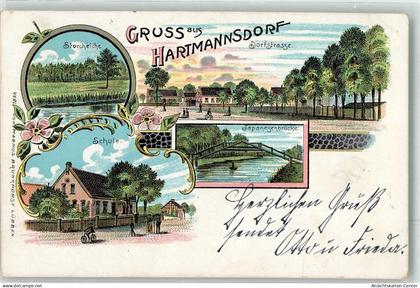 GRUSS aus
HARTMANNSDORF
Storcheiche
Dorfstrasse.
Schule.
Japanesenbrücke.
Herzlichen Gruß
sendet
Otto u Frieda.
Ansichtskarten-Center